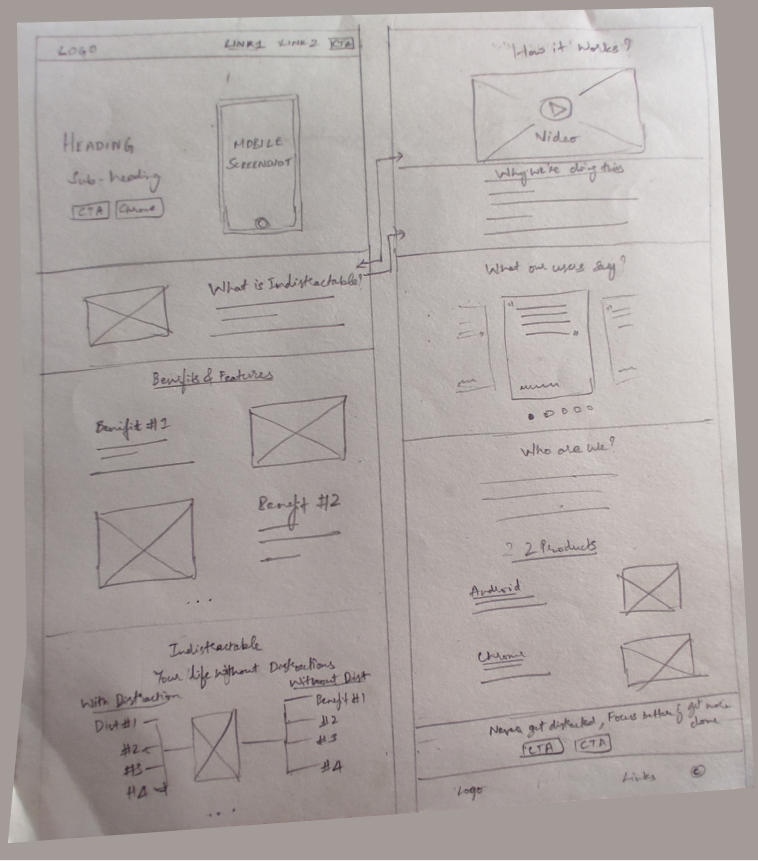 LOGO
LINK1 LINK2 CTA
HEADING
Sub-heading
CTA Chrome
MOBILE
SCREENSHOT
What is Indistractable?
Benefits & Features
Benifit #1
Benefit #2
...
Indistractable
Your life without Distractions
With Distraction
Dist #1
#2
#3
#4
Without Dist
Benefit #1
#2
#3
#4
...
"How it Works?
Video
Why we're doing this
What our users say?
Who are we?
2 2 Products
Android
Chrome
Never get distracted, Focus better & get more
done
CTA CTA
Logo
Links ©